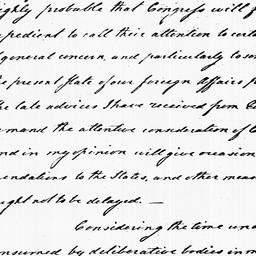 ighly probable that Congress will f
pedient to call their attention to certa
general concern, and particularly to som
e present State of our foreign Affairs f
he late advices I have received from E
mand the attentive consideration of C
nd in my opinion will give occasion
endations to the States, and other mea
ught not to be delayed. —
Considering the time una
onsumed by deliberative bodies in m